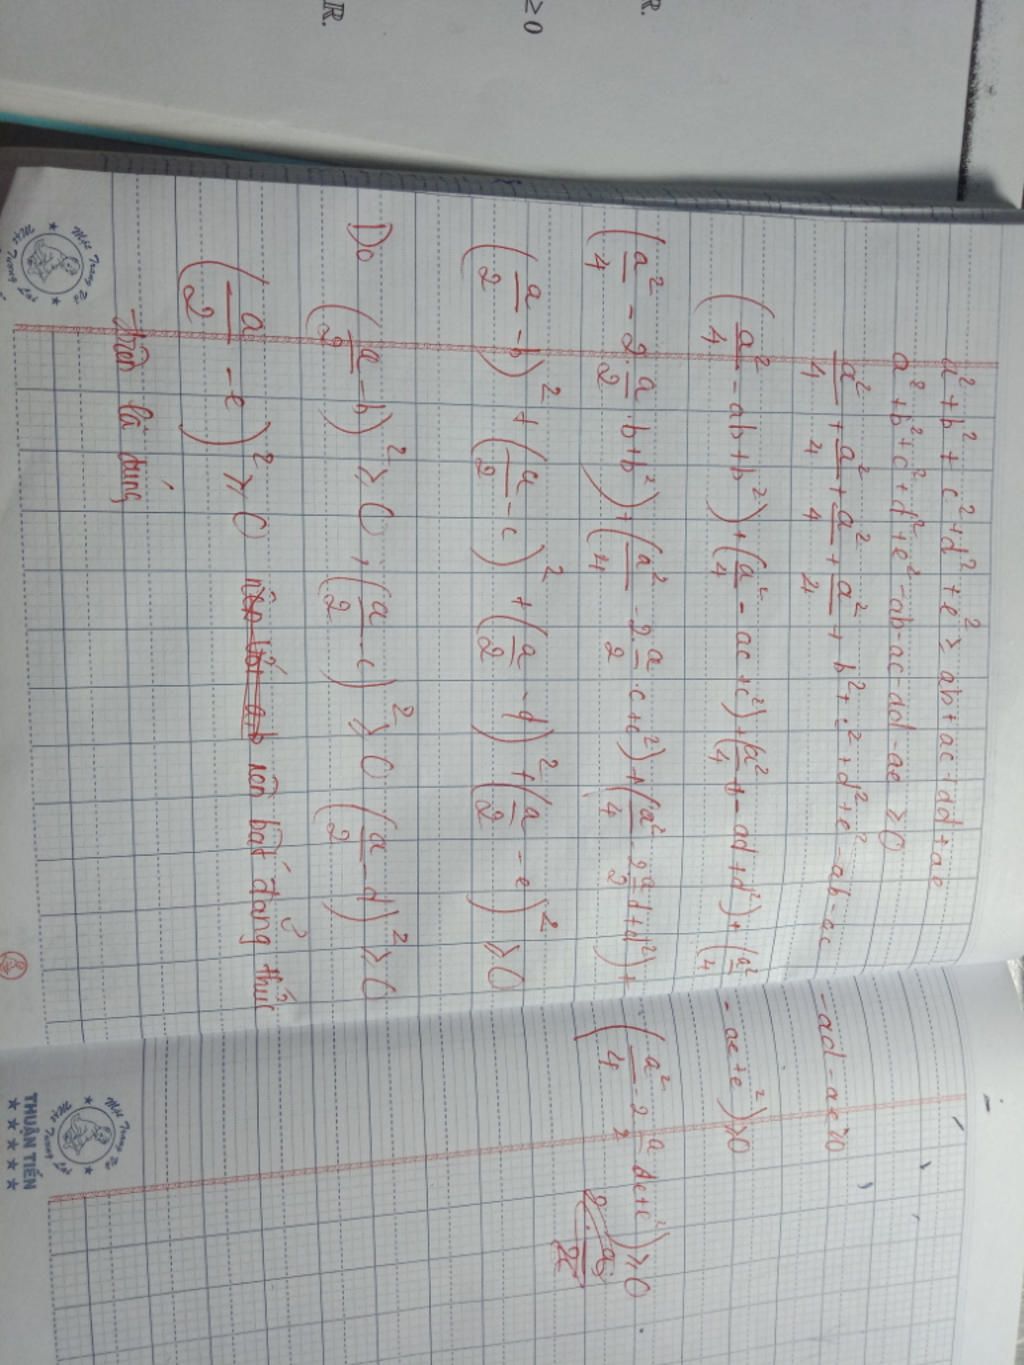 R.
≥ 0
R.
a² + b² + c² + d² + e² ≥ ab + ac + ad + ae
a² + b² + c² + d² + e² - ab - ac - ad - ae ≥ 0
a²/4 + a²/4 + a²/4 + a²/4 + b² + c² + d² + e² - ab - ac - ad - ae ≥ 0
(a²/4 - ab + b²) + (a²/4 - ac + c²) + (a²/4 - ad + d²) + (a²/4 - ae + e²) ≥ 0
(a²/4 - 2 a/2 . b + b²) + (a²/4 - 2 a/2 . c + c²) + (a²/4 - 2 a/2 d + d²) + (a²/4 - 2 a/2 e + e²) ≥ 0
(a/2 - b)² + (a/2 - c)² + (a/2 - d)² + (a/2 - e)² ≥ 0
Do (a/2 - b)² ≥ 0, (a/2 - c)² ≥ 0 (a/2 - d)² ≥ 0
(a/2 - e)² ≥ 0 nên bất đẳng thức
trên là đúng
THUẬN TIẾN